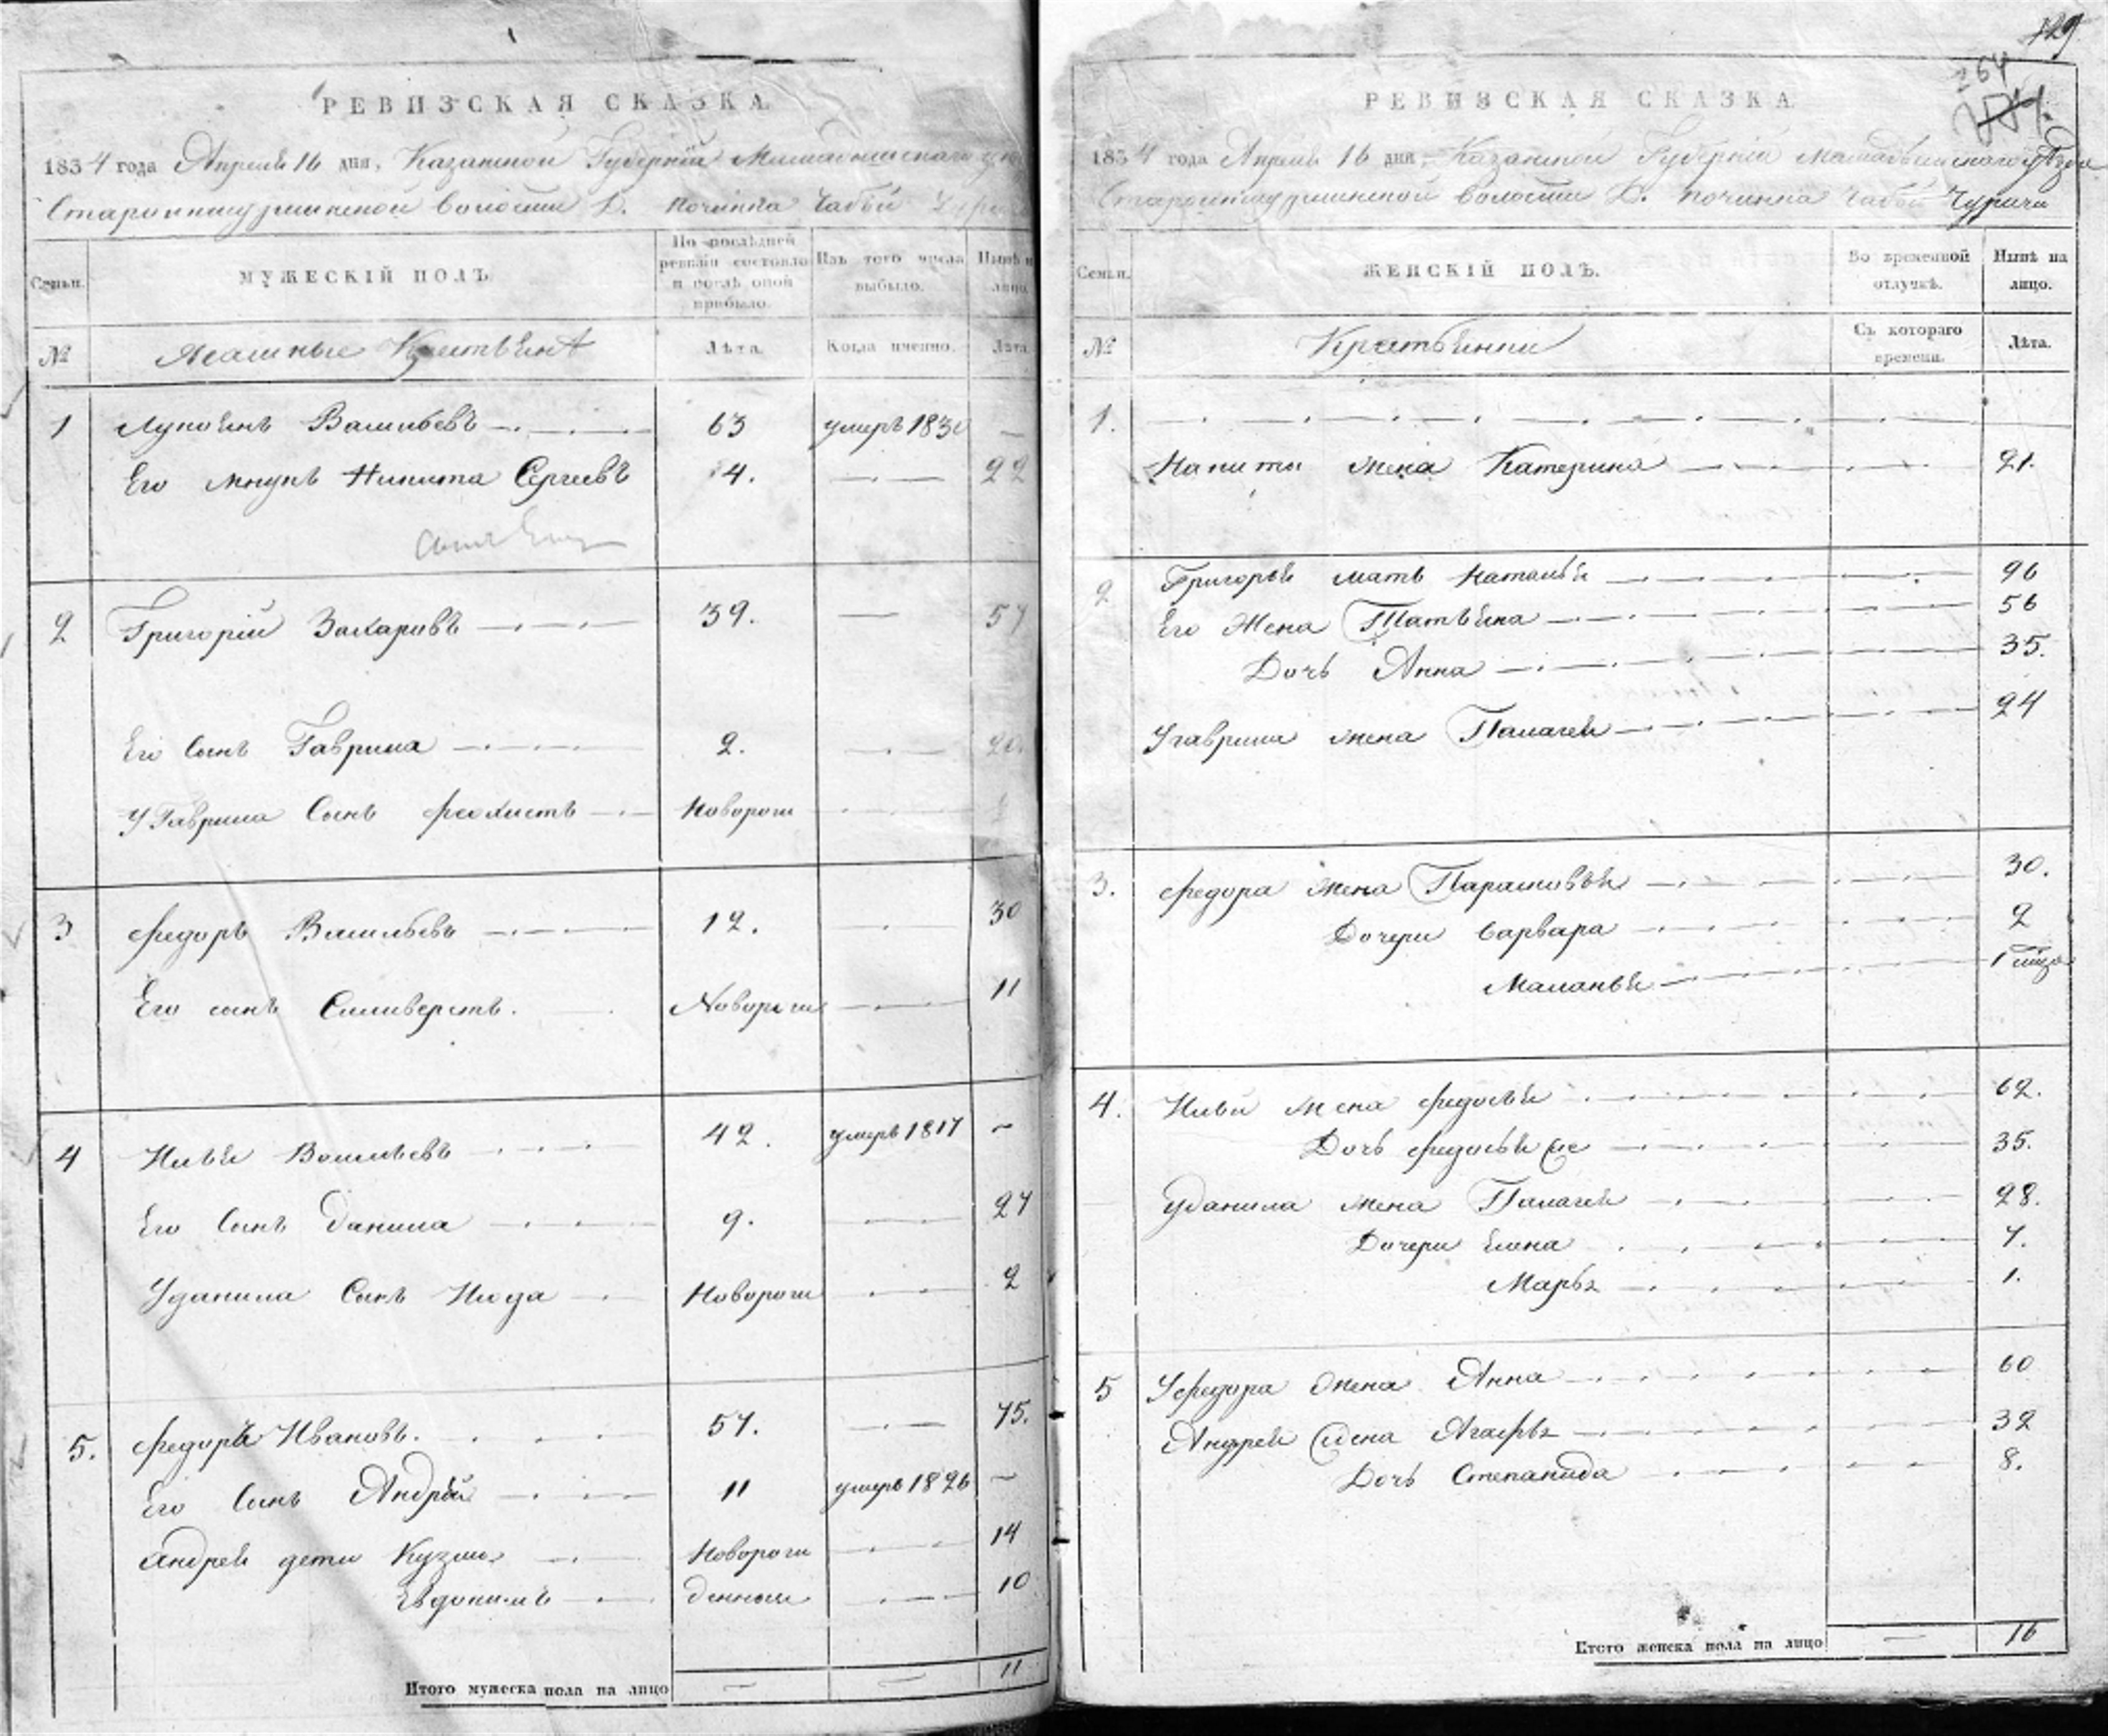 РЕВИЗСКАЯ СКАЗКА
1834 года Апреля 16 дня, Казанской Губернiи Мамадышскаго
волости Д. починка Чабьи
Семьи.
МУЖЕСКІЙ ПОЛЪ.
По послѣдней ревизіи состояло и послѣ оной прибыло.
Изъ того числа выбыло.
Нынѣ на лицо.
№
Ясашные Крестьяня
Лѣта.
Когда именно.
Лѣта
1 Лупоянъ Васильевъ 63 умеръ 183 —
Его внукъ Никита Сергеевъ 4. — 22
2 Григорій Захаровъ 39. — 57
Его Сынъ Гаврила 2. — 20.
У Гаврила Сынъ Феохистъ Новорож
3 Федоръ Васильевъ 12. 30
Его сынъ Силиверстъ. Новорож — 11
4 Илья Васильевъ 42. умеръ 1817 —
Его Сынъ Данила 9. — 27
У данила Сынъ Июда Новорож — 2
5. Федоръ Ивановъ. 57. — 75.
Его Сынъ Андрей 11 умеръ 1826 —
Андрея дети Кузма Новорож — 14
Евдокимъ денныи — 10
Итого мужеска пола на лицо — — 11
129
264
РЕВИЗСКАЯ СКАЗКА
1834 года Апреля 16 дня, Казанской Губернiи Мамадышскаго уѣзда
волости Д. починка Чабьи Чурачи
Семьи.
ЖЕНСКІЙ ПОЛЪ.
Во временной отлучкѣ.
Нынѣ на лицо.
№
Крестьянки
Съ котораго времени.
Лѣта.
1.
Никиты жена Катерина 21.
2 Григорья мать Наталья 96
Его Жена Татьяна 56
Дочь Анна 35.
У гаврила жена Палагея 24
3. Федора жена Парасковья 30.
Дочери Варвара 2
Маланья 1
4. Ильи жена Федосья 62.
Дочь Федосья 35.
У данила жена Палагея 28.
Дочери Елена 7.
Марья 1.
5 У федора жена Анна 60
Андрея жена Агафья 32
Дочь Степанида 8.
Итого женска пола на лицо — 16